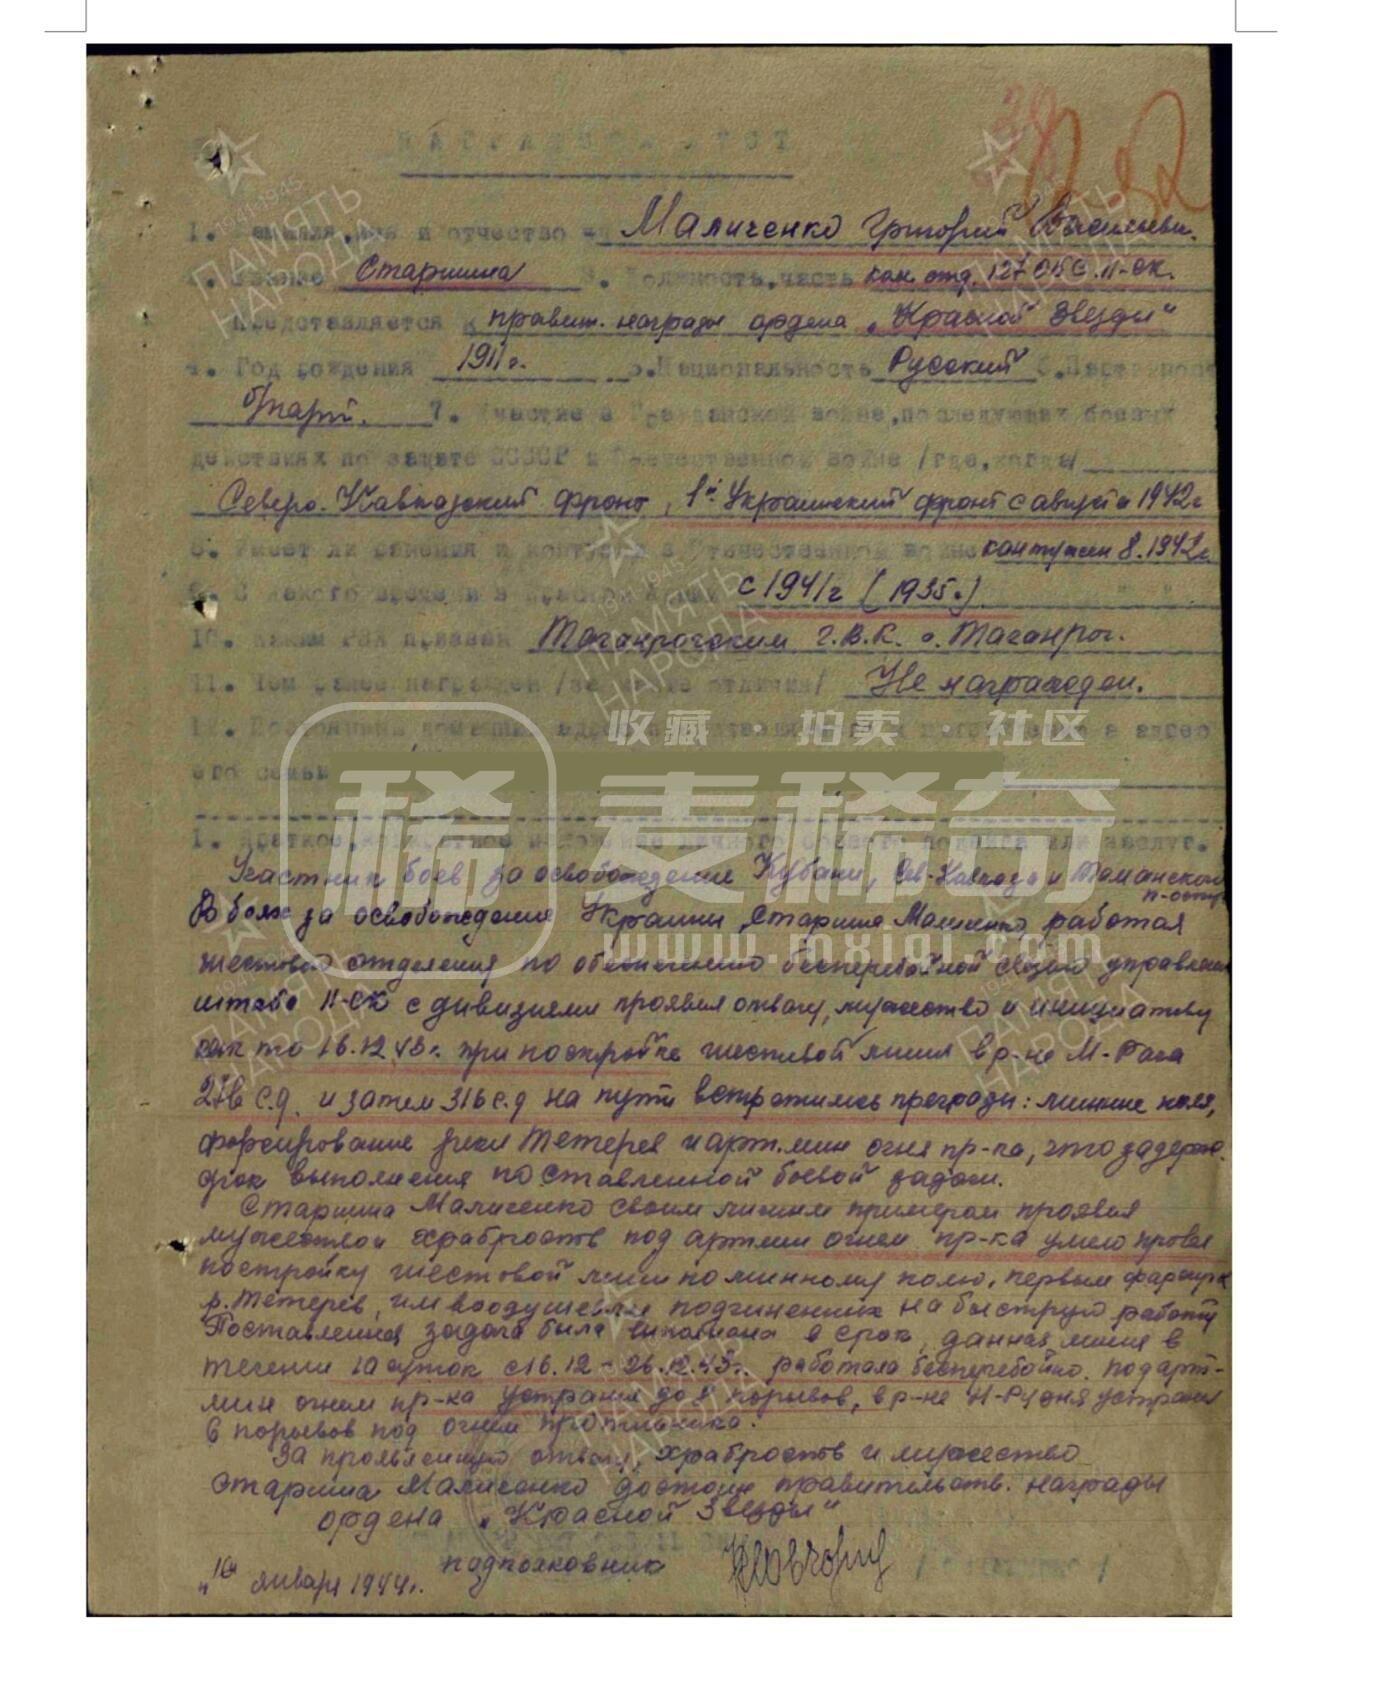 НАГРАДНОЙ ЛИСТ
1. Фамилия, имя и отчество Маличенко Григорий Васильеви.
2. Звание Старшина 3. Должность, часть ком. отд. 127 ОБС 11-ск.
Представляется к правит. награды ордена „Красной Звезды"
4. Год рождения 1911 г. 5. Национальность Русский 6. Партийност
б/парт. 7. Участие в Гражданской войне, последующих боевых
действиях по защите СССР и Отечественной войне /где, когда/
Северо-Кавказский фронт, 1й Украинский фронт с августа 1942 г
8. Имеет ли ранения и контузии в Отечественной войне контужен 8.1942г.
9. С какого времени в Красной Армии с 1941 г (1935 г.)
10. Каким РВК призван Таганрогским Г.В.К. г. Таганрог.
11. Чем ранее награжден /за какие отличия/ Не награжден.
12. Постоянный домашний адрес и адрес
его семьи
收藏 · 拍卖 · 社区
稀 麦稀奇
www.mxiqi.com
1. Краткое, конкретное изложение личного боевого подвига или заслуг.
Участник боев за освобождение Кубани, Сев-Кавказа и Таманского
п-остр
В боях за освобождение Украины, старшина Маличенко работая
шестовой отделения по обеспечению бесперебойной связью управления
штаба 11-ск с дивизиями проявил отвагу, мужество и инициативу
так то 16.12.43г. при постройке шестовой линии в р-не М-Рача
276 с.д. и затем 316 с.д на пути встретились преграды: минные поля,
форсирование реки Тетерев и арт.мин огня пр-ка, что задерж.
срок выполнения поставленной боевой задачи.
Старшина Маличенко своим личным примером проявил
мужество и храбрость под артмин огнем пр-ка умело провел
постройку шестовой линии по минному полю, первым форсир
р. Тетерев, им воодушевлял подчиненных на быструю работу
Поставленная задача была выполнена в срок, данная линия в
течении 10 суток с 16.12 - 26.12.43г. работала бесперебойно. под арт-
мин огнем пр-ка устранил до 8 порывов, в р-не Н-Рудня устранил
6 порывов под огнем противника.
За проявленную отвагу, храбрость и мужество
старшина Маличенко достоин правительств. награды
ордена „Красной Звезды"
подполковник
„10 января 1944г.
ПАМЯТЬ НАРОДА
1941-1945